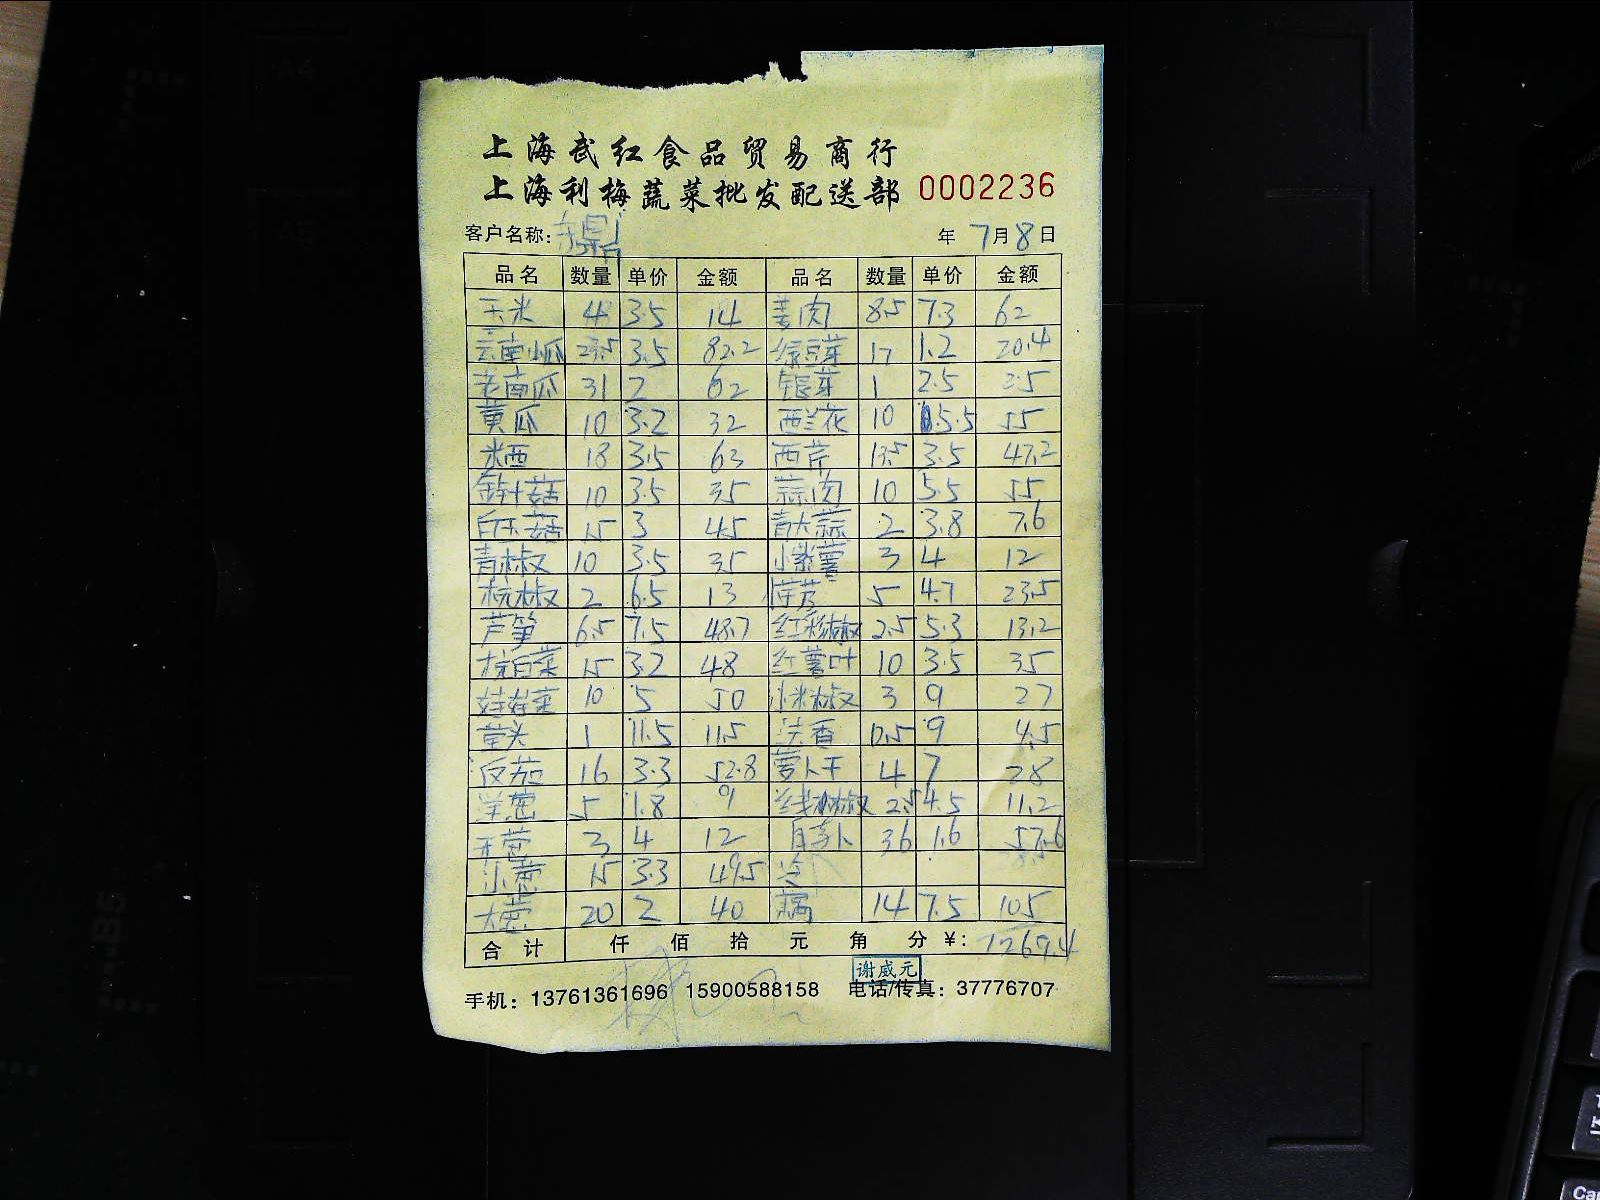 上海武红食品贸易商行
上海利梅蔬菜批发配送部 0002236
客户名称: 鼎 年 7月8日
品名 数量 单价 金额 品名 数量 单价 金额
玉米 4 3.5 14 姜肉 8.5 7.3 62
云南小瓜 23.5 3.5 82.2 绿豆芽 17 1.2 20.4
老南瓜 31 2 62 银芽 1 2.5 2.5
黄瓜 10 3.2 32 西兰花 10 5.5 55
米西 18 3.5 63 西芹 13.5 3.5 47.2
金针菇 10 3.5 35 蒜肉 10 5.5 55
白玉菇 15 3 45 青大蒜 2 3.8 7.6
青椒 10 3.5 35 小紫薯 3 4 12
杭椒 2 6.5 13 荸荠 5 4.7 23.5
芦笋 6.5 7.5 48.7 红彩椒 2.5 5.3 13.2
杭白菜 15 3.2 48 红薯叶 10 3.5 35
娃娃菜 10 5 50 小米椒 3 9 27
1 11.5 11.5 法香 0.5 9 4.5
反茄 16 3.3 52.8 萝卜干 4 7 28
洋葱 5 1.8 9 线椒 2.5 4.5 11.2
3 4 12 白萝卜 36 1.6 57.6
小葱 15 3.3 49.5
大葱 20 2 40 藕 14 7.5 105
合计 仟 佰 拾 元 角 分 ¥: 1269.4
谢威元
手机: 13761361696 15900588158 电话/传真: 37776707